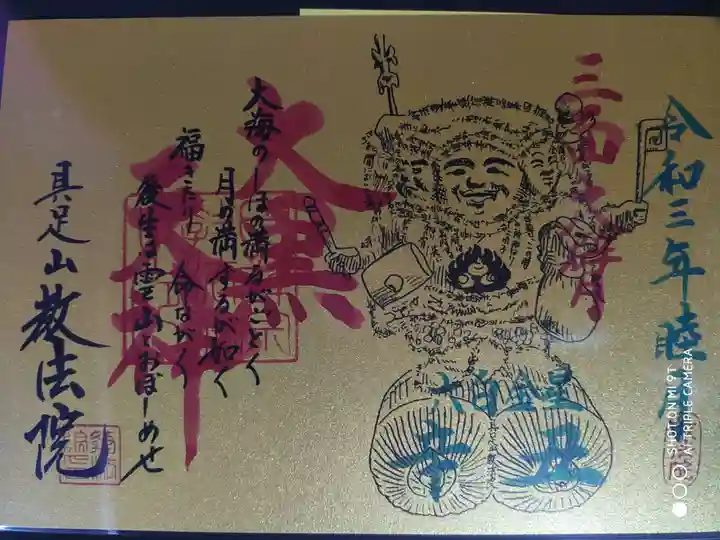 令和三年睦月
三面大黒
六白金星
辛丑
大黒
天神
大海のしほの満るがごとく
月の満するが如く
福きたり 命ながく
後生は霊山とおぼしめせ
具足山
教法院
SHOT ON MI 9T
AI TRIPLE CAMERA